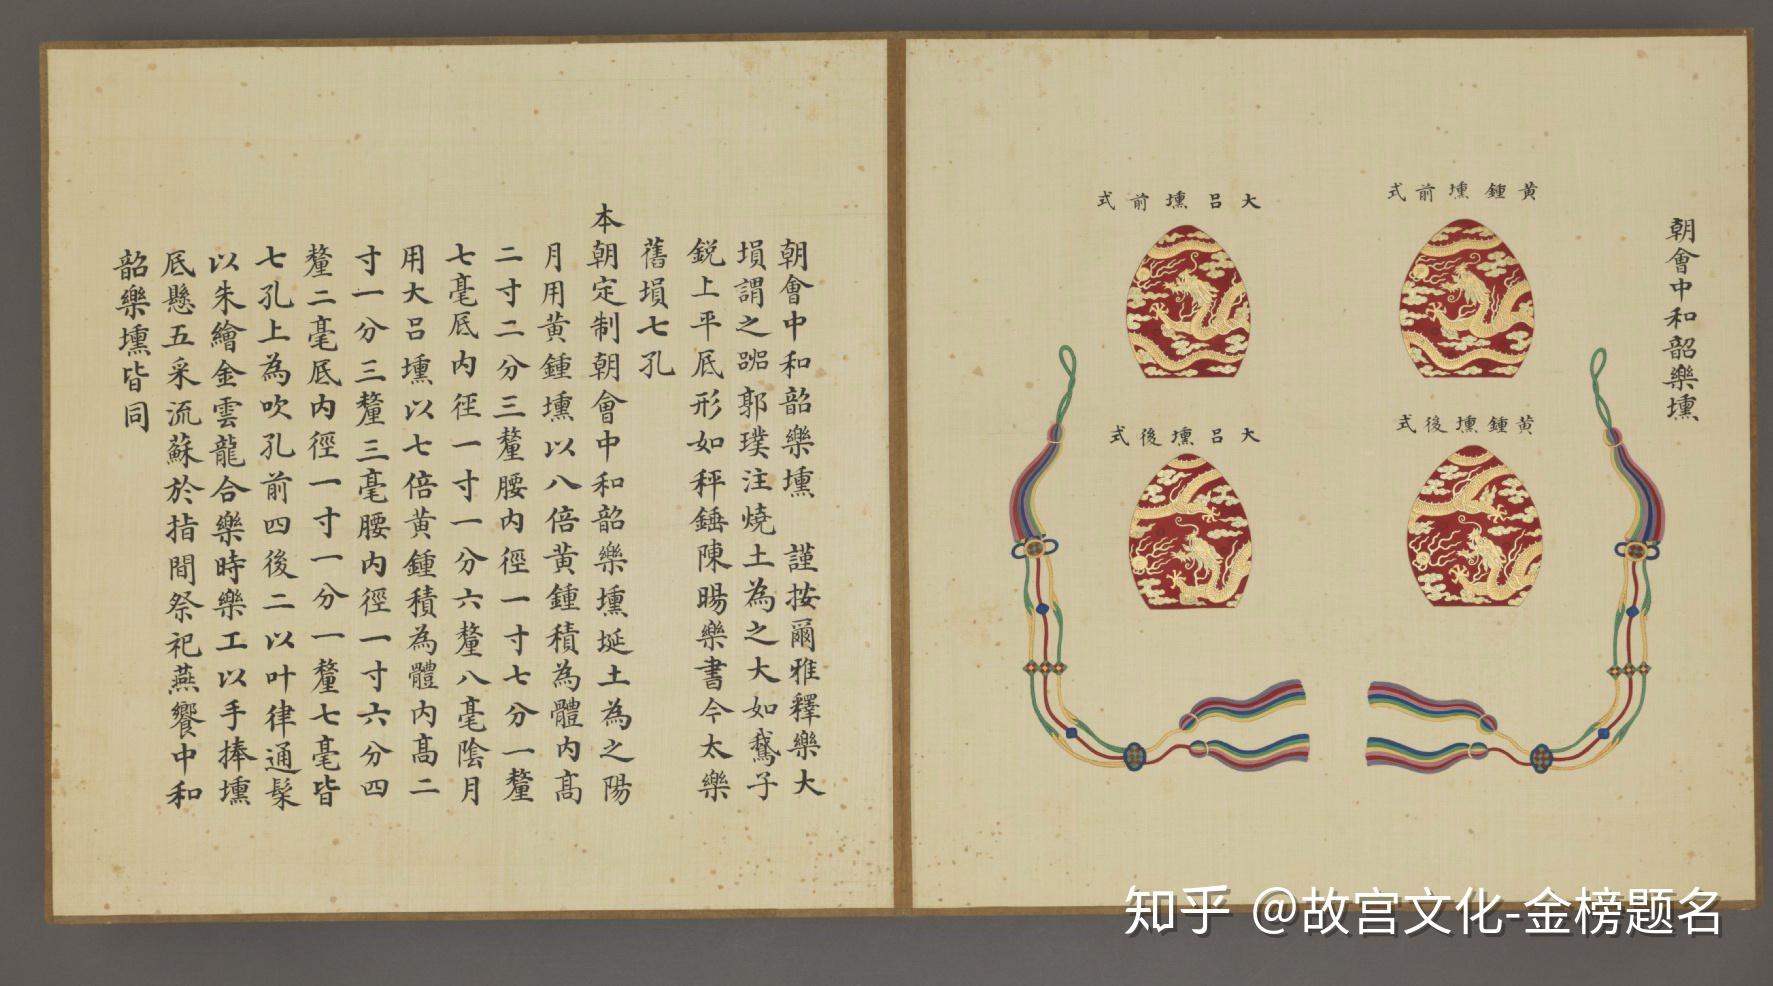 朝會中和韶樂壎
黃鍾壎前式
大呂壎前式
黃鍾壎後式
大呂壎後式
朝會中和韶樂壎 謹按爾雅釋樂大
塤謂之嘂郭璞注燒土為之大如鵞子
銳上平底形如秤錘陳暘樂書今太樂
舊塤七孔
本朝定制朝會中和韶樂壎埏土為之陽
月用黃鍾壎以八倍黃鍾積為體內高
二寸二分三釐腰內徑一寸七分一釐
七毫底內徑一寸一分六釐八毫陰月
用大呂壎以七倍黃鍾積為體內高二
寸一分三釐三毫腰內徑一寸六分四
釐二毫底內徑一寸一分一釐七毫皆
七孔上為吹孔前四後二以叶律通髹
以朱繪金雲龍合樂時樂工以手捧壎
底懸五采流蘇於指間祭祀燕饗中和
韶樂壎皆同
知乎 @故宫文化-金榜题名